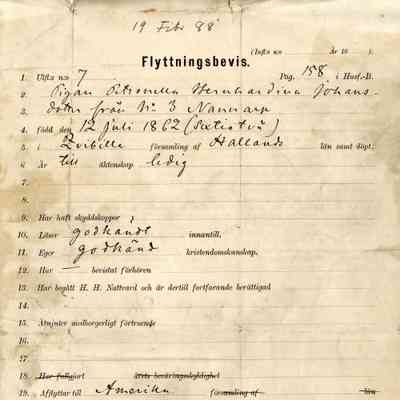 19 Febr 88
(Infts n:o År 18 ).
Flyttningsbevis.
1. Utfts n:o 7 Pag. 158 i Husf.-B.
2. Pigan Petronella Bernhardina Johans-
3. dotter från No 3 Nannarp
4. född den 12 juli 1862 (sextiotvå)
5. i Qvibille församling af Hallands län samt dito;
6. Är till äktenskap ledig
7.
8.
9. Har haft skyddskoppor ;
10. Läser godkändt innantill,
11. Eger godkänd kristendomskunskap,
12. Har — bevistat förhören
13. Har begått H. H. Nattvard och är dertill fortfarande berättigad
14.
15. Åtnjuter medborgerligt förtroende
16.
17.
18. Har fullgjort årets beväringsskyldighet
19. Afflyttar till Amerika församling af län